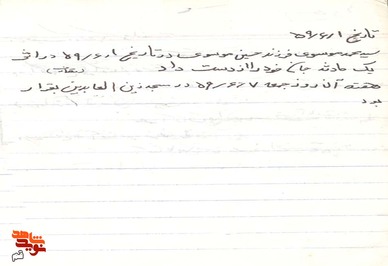 تاریخ ۵۹/۶/۱
سید محمد موسوی فرزند حسین موسوی در تاریخ ۵۹/۶/۱ در اثر
یک حادثه جان خود را از دست داد
هفته آن روز جمعه ۵۹/۶/۷ در مسجد زین العابدین برقرار
بود
نوید شاهد